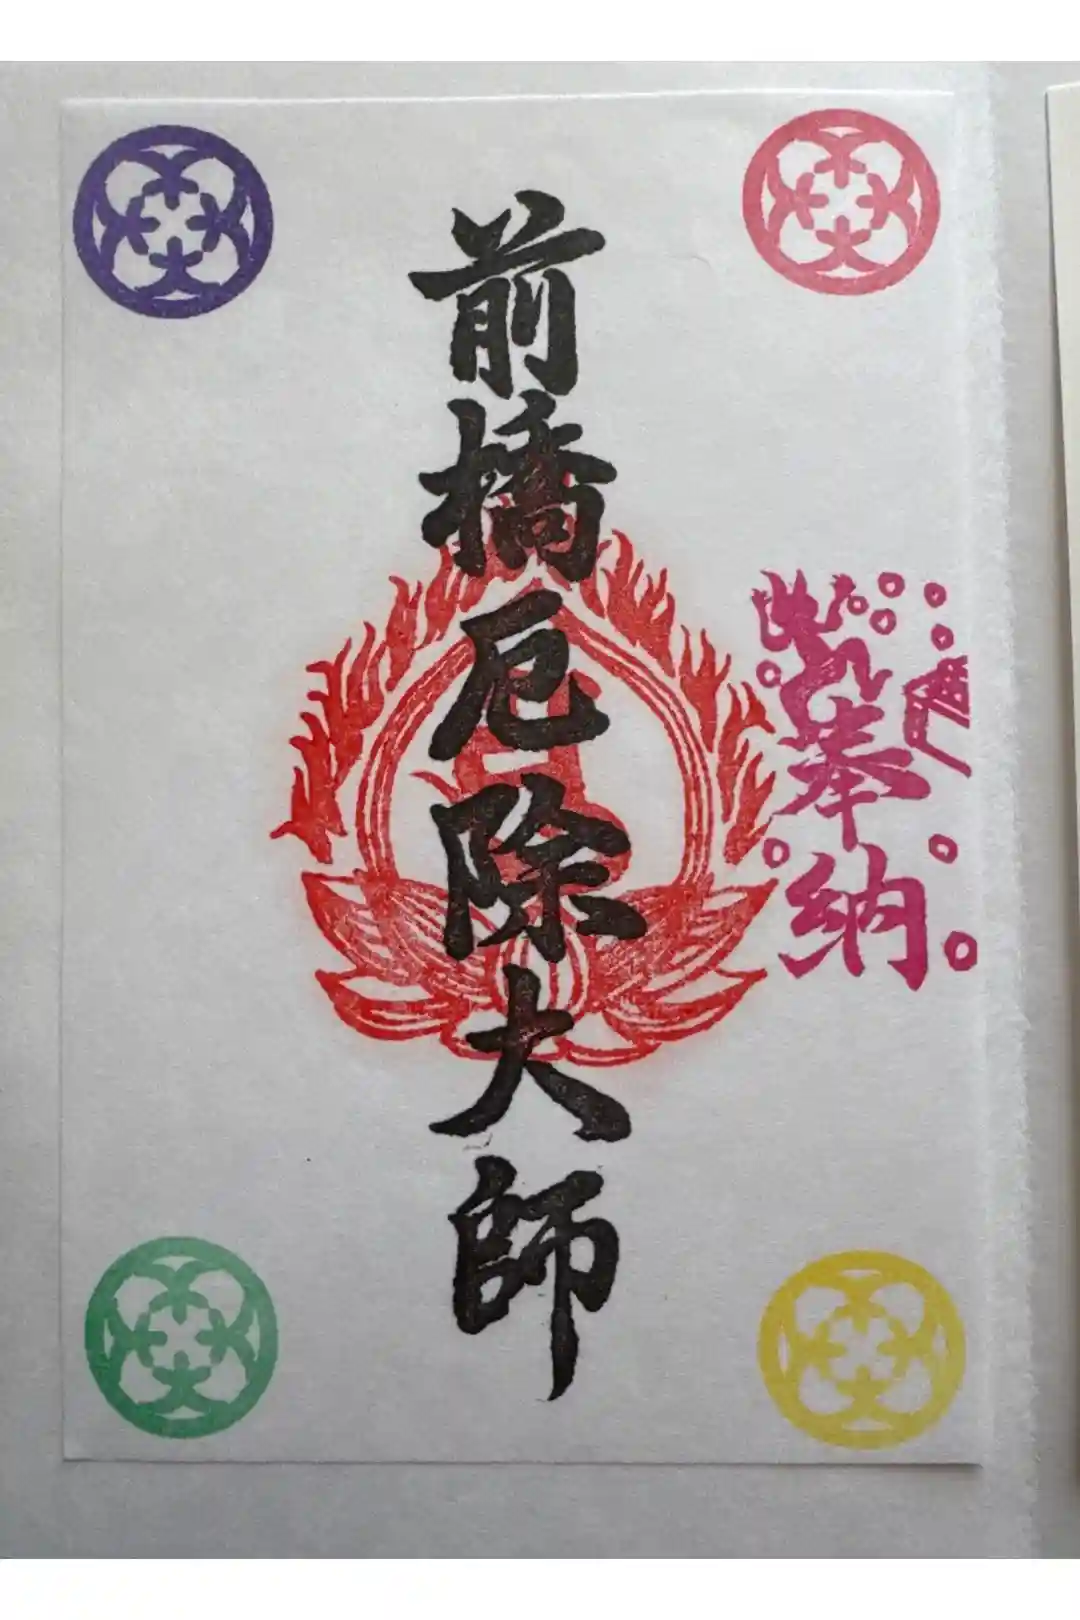 奉納
前橋厄除大師